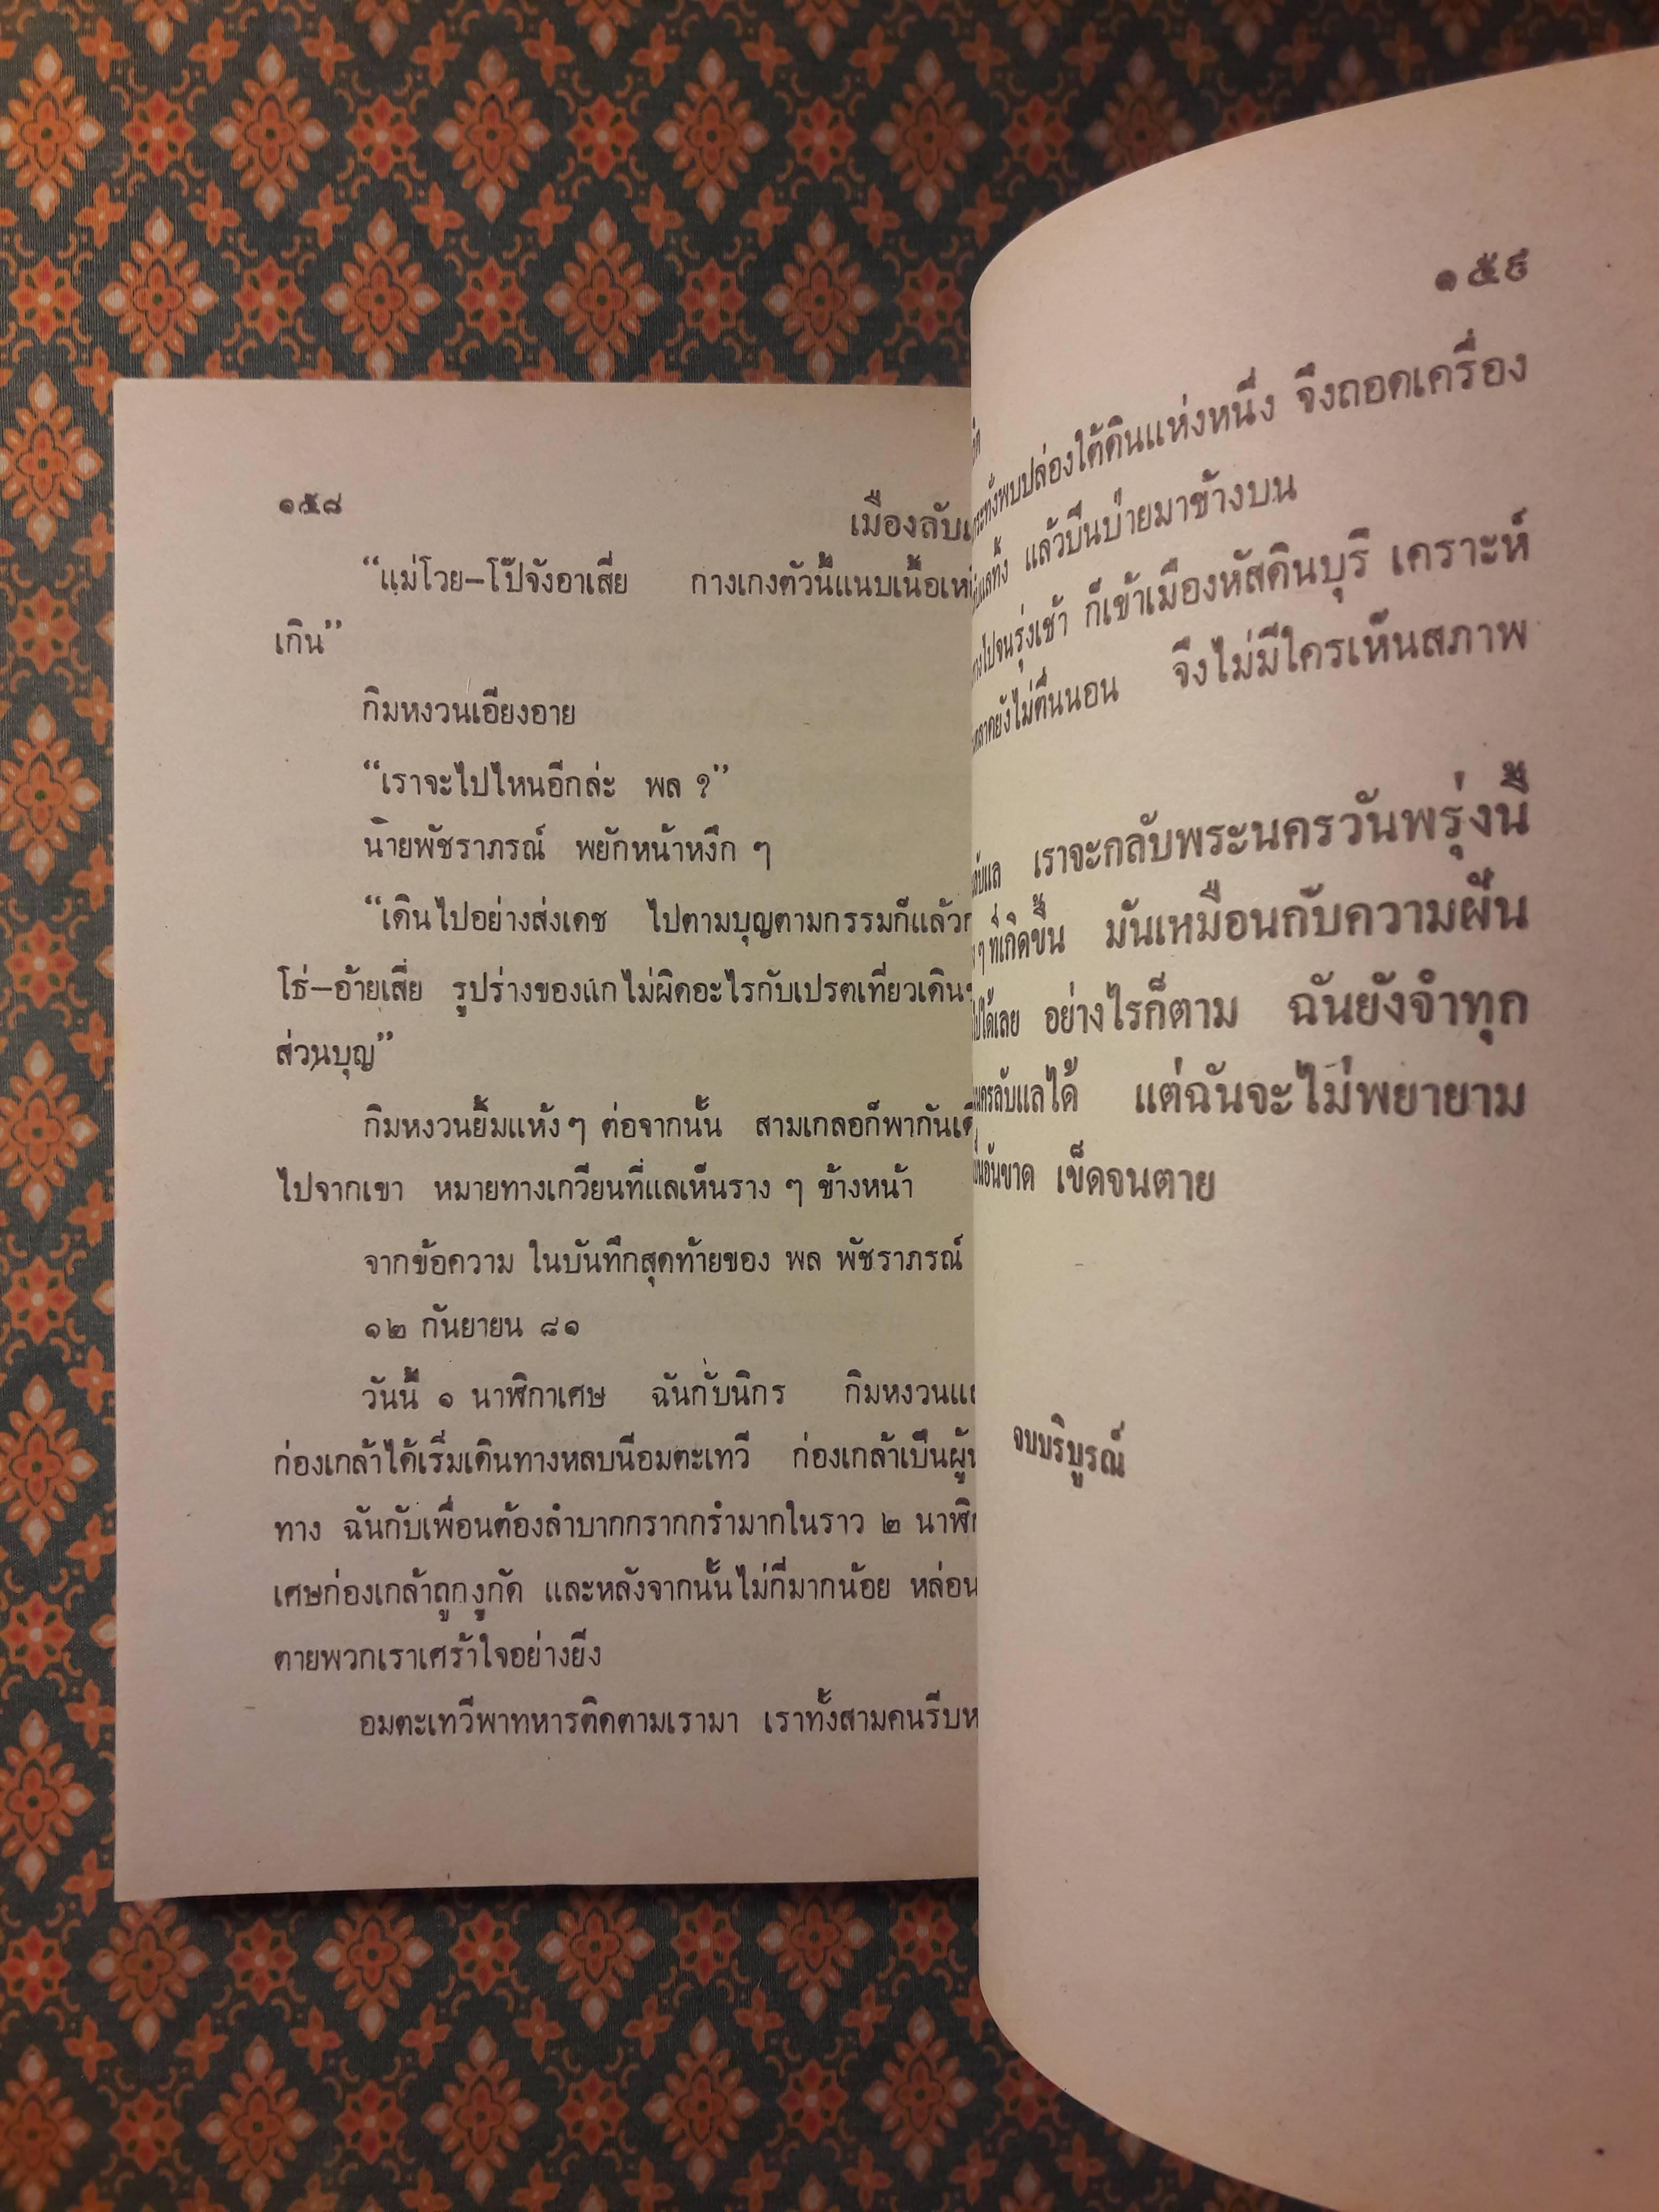 ๑๕๘
เมืองลับแ
“แม่โวย—โป๊จังอาเสี่ย กางเกงตัวนี้แนบเนื้อเห
เกิน”
กิมหงวนเอียงอาย
“เราจะไปไหนอีกล่ะ พล ?”
นายพัชราภรณ์ พยักหน้าหงึก ๆ
“เดินไปอย่างส่งเดช ไปตามบุญตามกรรมก็แล้วก
โธ่—อ้ายเสี่ย รูปร่างของแกไม่ผิดอะไรกับเปรตเที่ยวเดิน
ส่วนบุญ”
กิมหงวนยิ้มแห้งๆ ต่อจากนั้น สามเกลอก็พากันเดิ
ไปจากเขา หมายทางเกวียนที่แลเห็นราง ๆ ข้างหน้า
จากข้อความ ในบันทึกสุดท้ายของ พล พัชราภรณ์
๑๒ กันยายน ๘๑
วันนี้ ๑ นาฬิกาเศษ ฉันกับนิกร กิมหงวนแล
ก่องเกล้าได้เริ่มเดินทางหลบนีอมตะเทวี ก่องเกล้าเป็นผู้น
ทาง ฉันกับเพื่อนต้องลำบากกรากกรำมากในราว ๒ นาฬิก
เศษก่องเกล้าถูกงูกัด และหลังจากนั้นไม่กี่มากน้อย หล่อน
ตายพวกเราเศร้าใจอย่างยิ่ง
อมตะเทวีพาทหารติดตามเรามา เราทั้งสามคนรีบห
๑๕๙
ระทั่งพบปล่องใต้ดินแห่งหนึ่ง จึงถอดเครื่อง
แลทั้ง แล้วปีนป่ายมาข้างบน
ไปจนรุ่งเช้า ก็เข้าเมืองหัสดินบุรี เคราะห์
ตลาดยังไม่ตื่นนอน จึงไม่มีใครเห็นสภาพ
ลับแล เราจะกลับพระนครวันพรุ่งนี้
ๆ ที่เกิดขึ้น มันเหมือนกับความฝัน
ไปได้เลย อย่างไรก็ตาม ฉันยังจำทุก
นครลับแลได้ แต่ฉันจะไม่พยายาม
อันขาด เข็ดจนตาย
จบบริบูรณ์